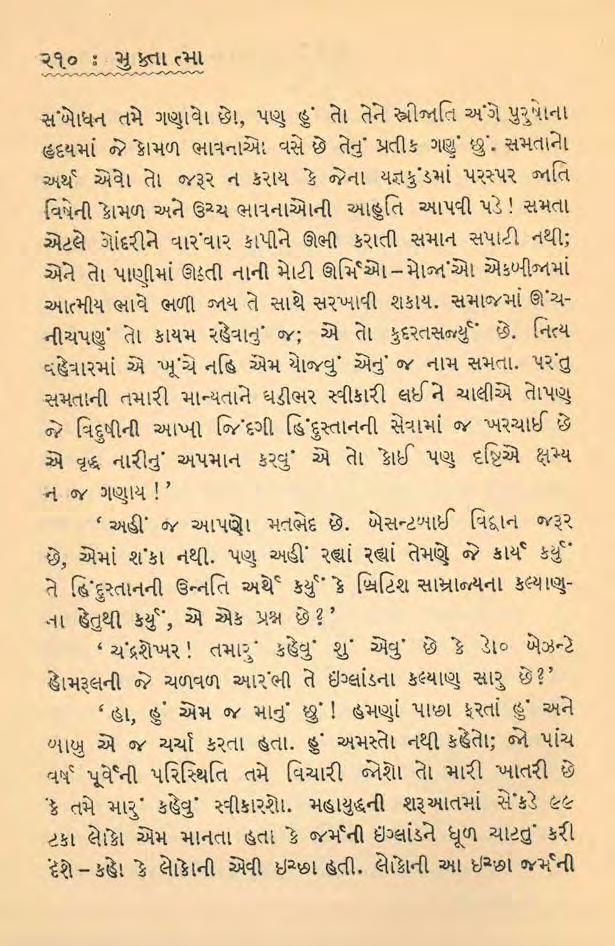 ૨૧૦ : મુક્તાત્મા
સંબોધન તમે ગણાવો છો, પણ હું તો તેને સ્ત્રીજાતિ અંગે પુરુષોના
હૃદયમાં જે કોમળ ભાવનાઓ વસે છે તેનું પ્રતીક ગણું છું. સમતાનો
અર્થ એવો તો જરૂર ન કરાય કે જેના યજ્ઞકુંડમાં પરસ્પર જાતિ
વિષેની કોમળ અને ઉચ્ચ ભાવનાઓની આહુતિ આપવી પડે! સમતા
એટલે ગોંદરીને વારંવાર કાપીને ઊભી કરાતી સમાન સપાટી નથી;
એને તો પાણીમાં ઊઠતી નાની મોટી ઊર્મિઓ – મોજાંઓ એકબીજામાં
આત્મીય ભાવે ભળી જાય તે સાથે સરખાવી શકાય. સમાજમાં ઊંચ-
નીચપણું તો કાયમ રહેવાનું જ; એ તો કુદરતસર્જ્યું છે. નિત્ય
વહેવારમાં એ ખૂંચે નહિ એમ યોજવું એનું જ નામ સમતા. પરંતુ
સમતાની તમારી માન્યતાને ઘડીભર સ્વીકારી લઈને ચાલીએ તોપણ
જે વિદુષીની આખી જિંદગી હિંદુસ્તાનની સેવામાં જ ખરચાઈ છે
એ વૃદ્ધ નારીનું અપમાન કરવું એ તો કોઈ પણ દૃષ્ટિએ ક્ષમ્ય
ન જ ગણાય !’
‘ અહીં જ આપણો મતભેદ છે. બેસન્ટબાઈ વિદ્વાન જરૂર
છે, એમાં શંકા નથી. પણ અહીં રહ્યાં રહ્યાં તેમણે જે કાર્ય કર્યું
તે હિંદુસ્તાનની ઉન્નતિ અર્થે કર્યું કે બ્રિટિશ સામ્રાજ્યના કલ્યાણ-
ના હેતુથી કર્યું, એ એક પ્રશ્ન છે?’
‘ ચંદ્રશેખર! તમારું કહેવું શું એવું છે કે ડૉ૦ બેઝન્ટે
હોમરૂલની જે ચળવળ આરંભી તે ઇંગ્લાંડના કલ્યાણ સારુ છે?’
‘ હા, હું એમ જ માનું છું! હમણાં પાછા ફરતાં હું અને
બાબુ એ જ ચર્ચા કરતા હતા. હું અમસ્તો નથી કહેતો; જો પાંચ
વર્ષ પૂર્વેની પરિસ્થિતિ તમે વિચારી જોશો તો મારી ખાતરી છે
કે તમે મારું કહેવું સ્વીકારશો. મહાયુદ્ધની શરૂઆતમાં સેંકડે ૯૯
ટકા લોકો એમ માનતા હતા કે જર્મની ઇંગ્લાંડને ધૂળ ચાટતું કરી
દેશે – કહો કે લોકોની એવી ઇચ્છા હતી. લોકોની આ ઇચ્છા જર્મની